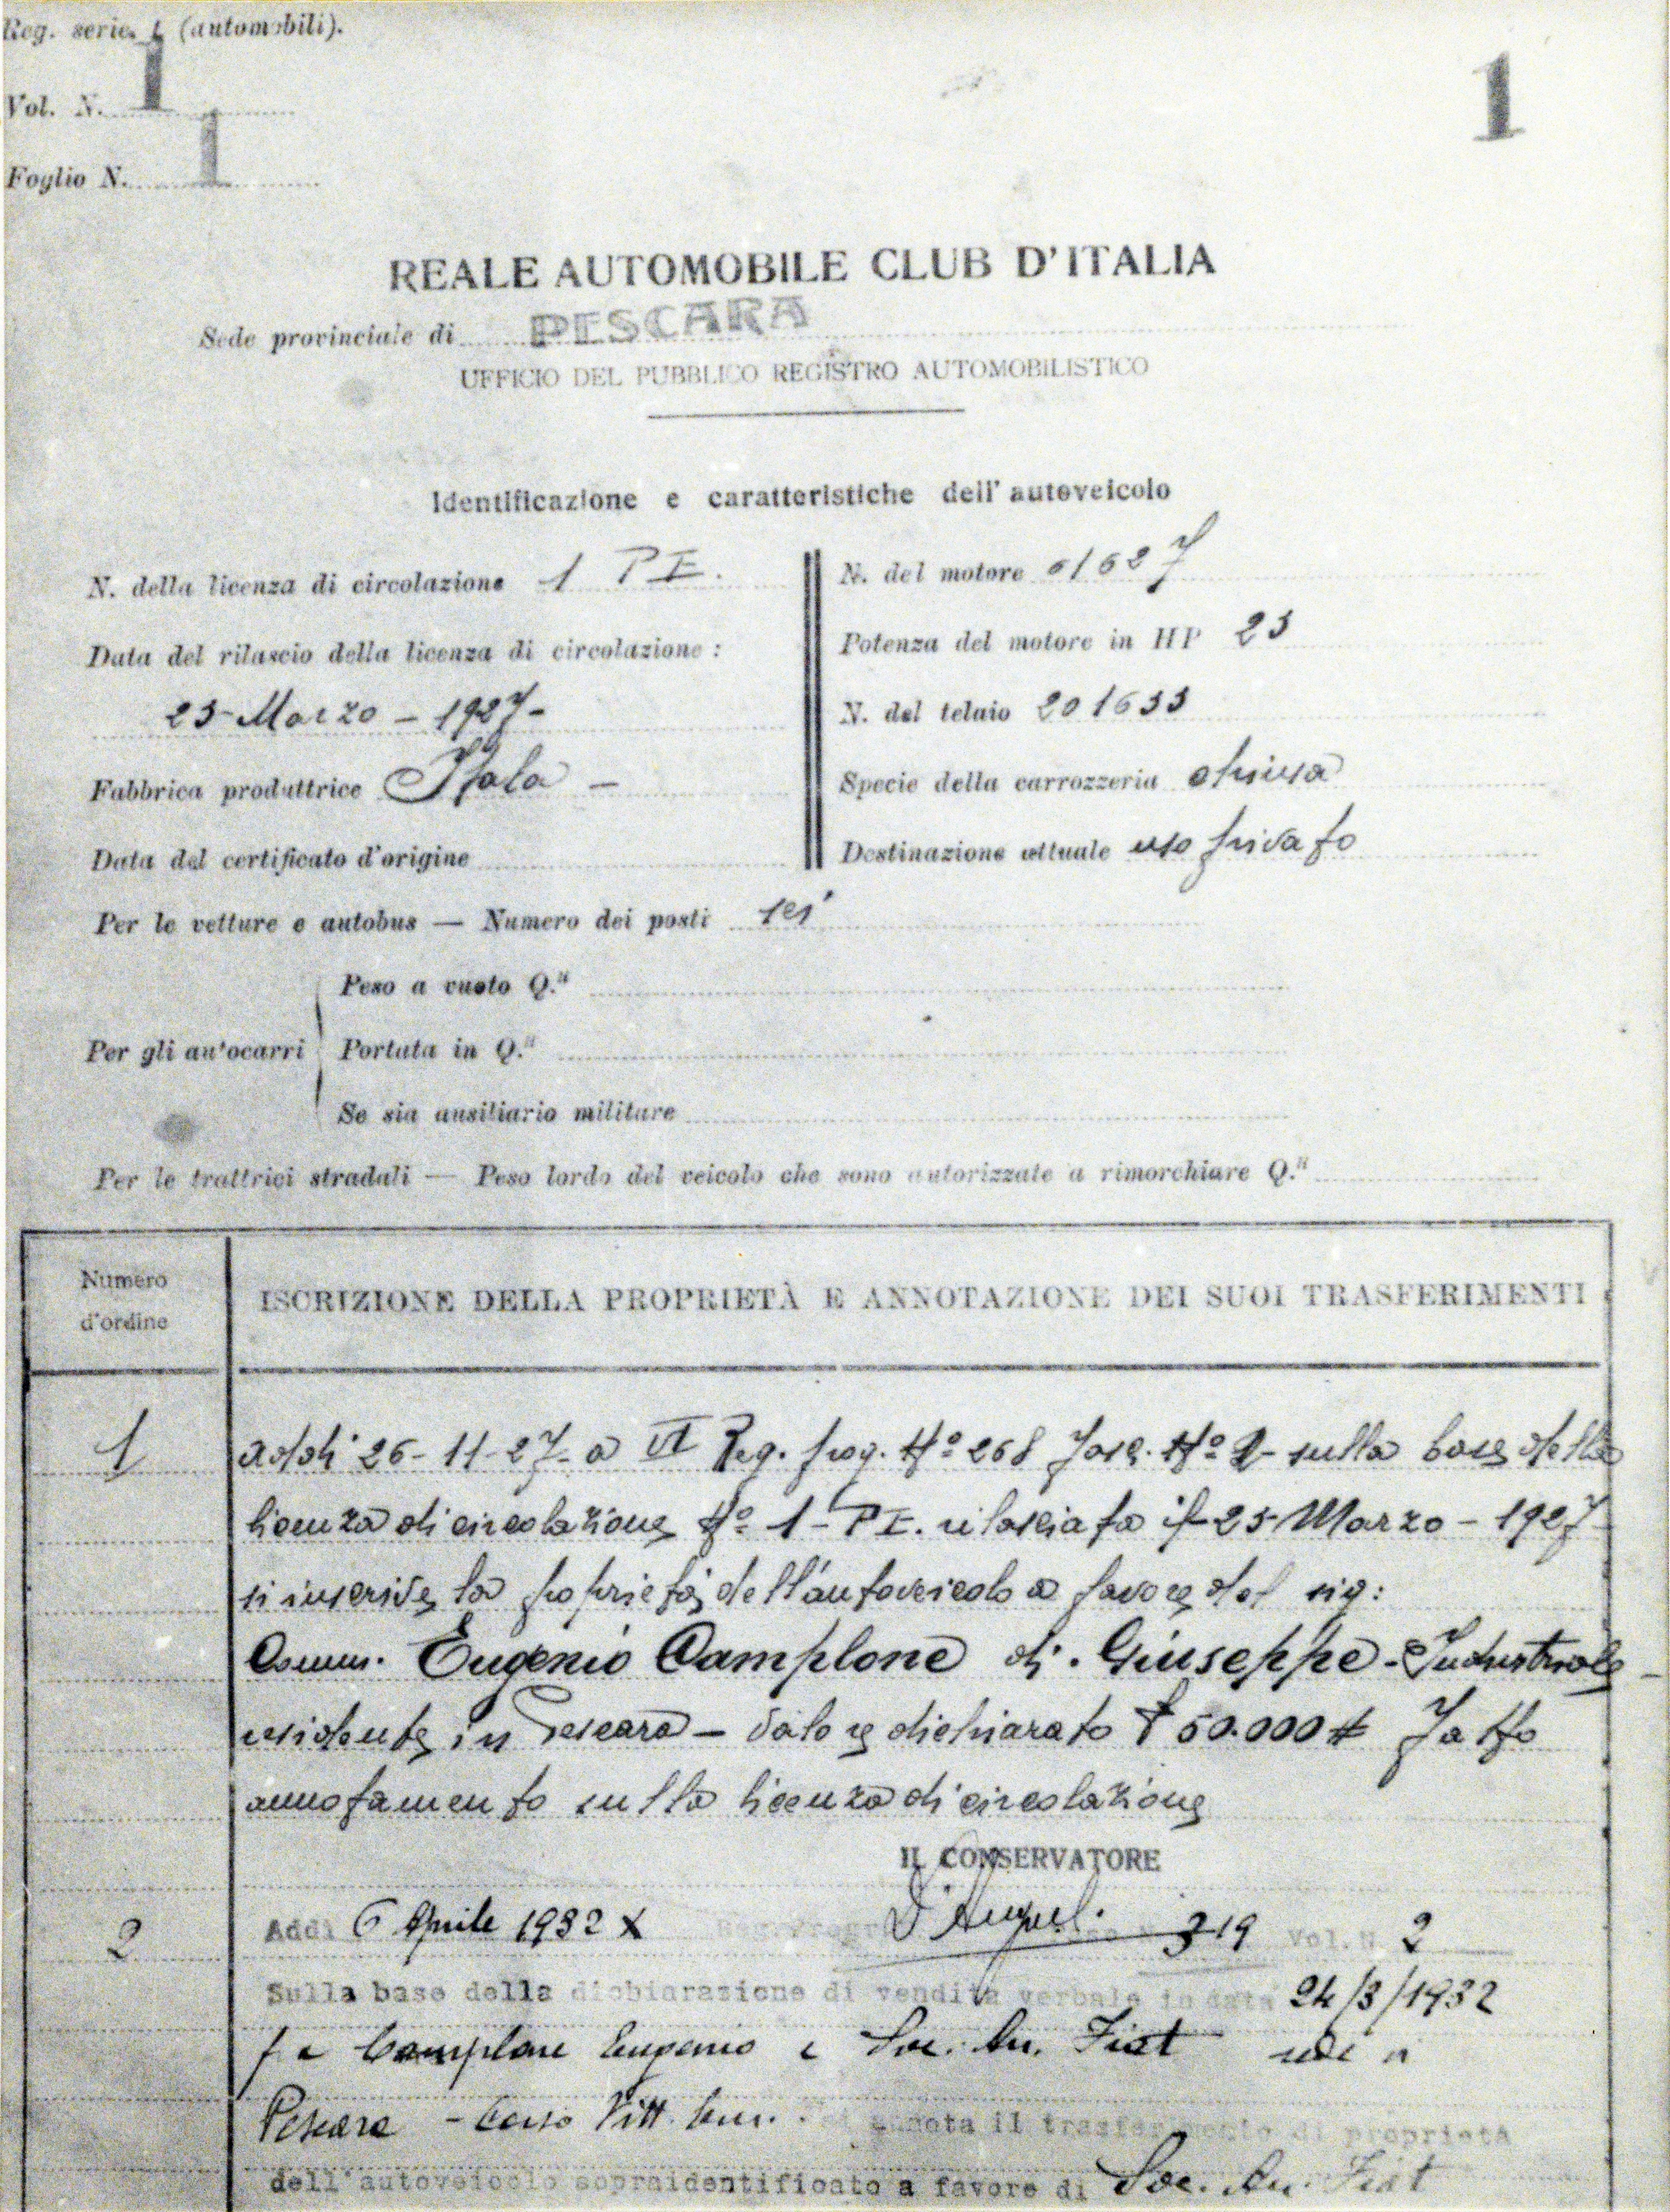 Reg. serie 1 (automobili).
1
Vol. N. 1
Foglio N. 1
REALE AUTOMOBILE CLUB D'ITALIA
Sede provinciale di PESCARA
UFFICIO DEL PUBBLICO REGISTRO AUTOMOBILISTICO
Identificazione e caratteristiche dell'autoveicolo
N. della licenza di circolazione 1 PE.
N. del motore 61627
Data del rilascio della licenza di circolazione :
Potenza del motore in HP 25
25-Marzo-1927-
N. del telaio 201633
Fabbrica produttrice Itala -
Specie della carrozzeria chiusa
Data del certificato d'origine
Destinazione attuale uso privato
Per le vetture e autobus — Numero dei posti sei
Peso a vuoto Q.li
Per gli autocarri
Portata in Q.li
Se sia ausiliario militare
Per le trattrici stradali — Peso lordo del veicolo che sono autorizzate a rimorchiare Q.li
Numero d'ordine
ISCRIZIONE DELLA PROPRIETÀ E ANNOTAZIONE DEI SUOI TRASFERIMENTI
1 addì 26-11-27- a VI Reg. prog. Nº 268 Fasc. Nº 2- sulla base della
licenza di circolazione Nº 1-PE. rilasciata il 25-Marzo-1927
si inscrive la proprietà dell'autoveicolo a favore del sig:
Comm. Eugenio Camplone di Giuseppe - Industriale -
residente in Pescara - valore dichiarato £ 50.000 # Fatto
annotamento sulla licenza di circolazione
IL CONSERVATORE
2 Addì 6 Aprile 1932 X Reg. Progr. 319 Vol. N. 2
Sulla base della dichiarazione di vendita verbale in data 24/3/1932
fra Camplone Eugenio e Soc. An. Fiat
Pescara - Corso Vitt. Em. si annota il trasferimento di proprietà
dell'autoveicolo sopraidentificato a favore di Soc. An. Fiat